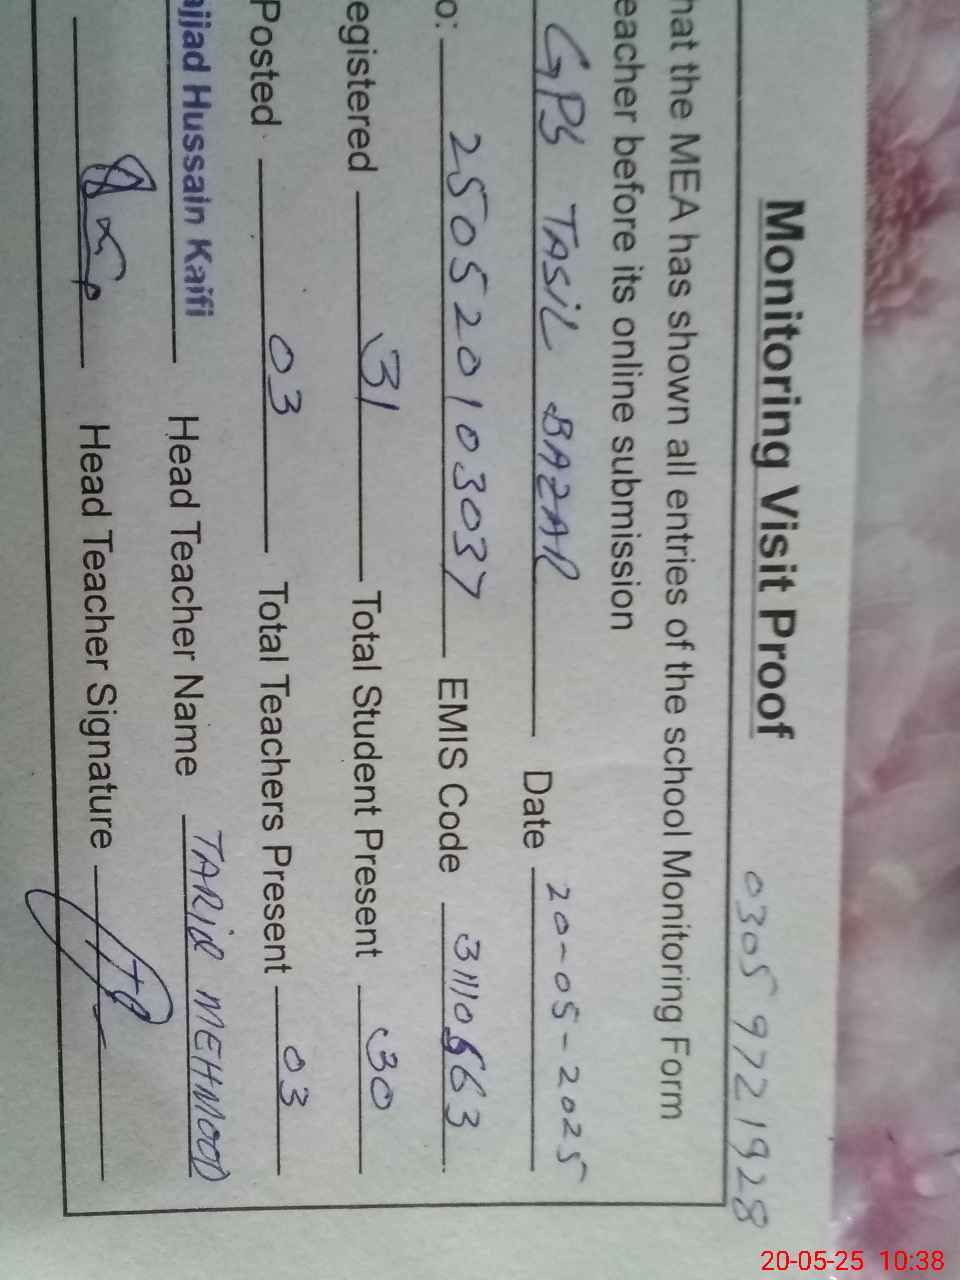 Monitoring Visit Proof
0305 9721928
hat the MEA has shown all entries of the school Monitoring Form
eacher before its online submission
GPS TASIL BAZAR Date 20-05-2025
o: 250520103037 EMIS Code 31110663
egistered 31 Total Student Present 30
Posted 03 Total Teachers Present 03
ajjad Hussain Kaifi Head Teacher Name TARIQ MEHMOOD
Head Teacher Signature
20-05-25 10:38